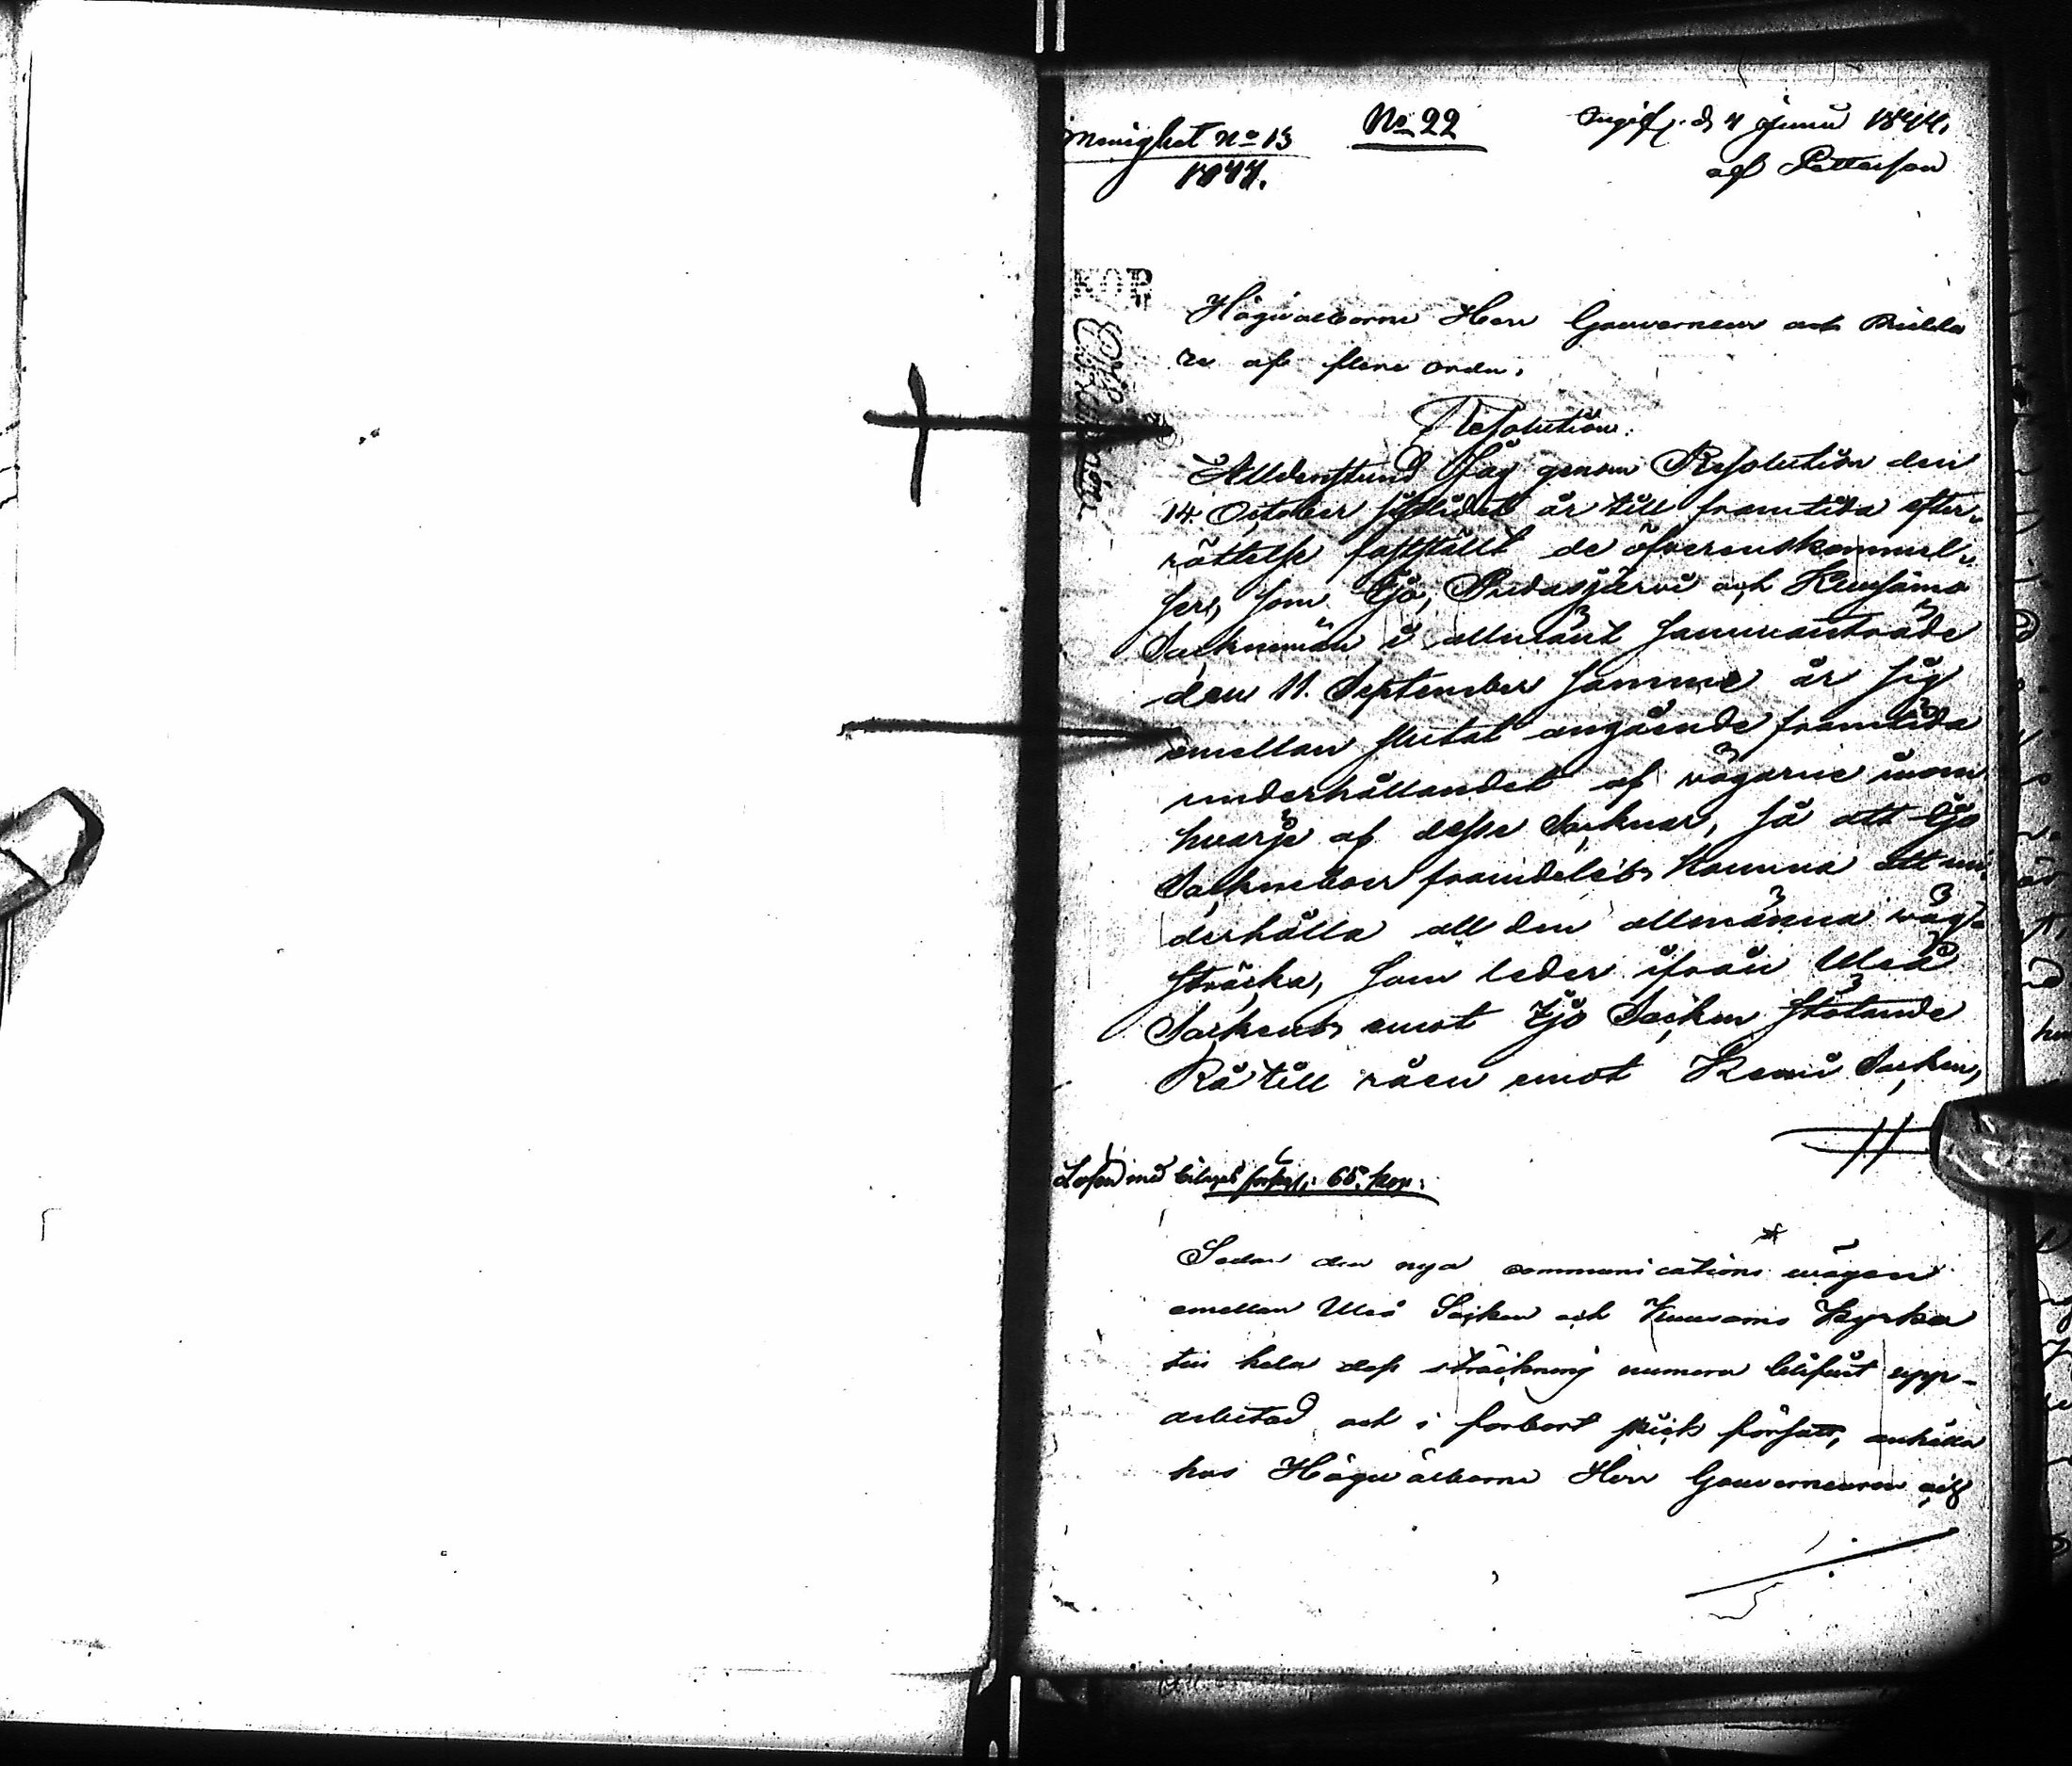 Menighet No 13
1844.
No 22
Ingif. d. 4 Junii 1844.
af Petterson
KOP
Högvälborne Herr Gouverneur och Ridda
re af flere Orden.
Resolution:
Alldenstund Jag genom Resolution den
14. October sistlidet år till framtida efter„
rättelse fastställt de öfverenskommel„
ser, som Ijo, Pudasjärvi och Kuusamo
Socknemän i allmänt sammanträde
den 11. September samma år sig
emellan slutat angående framtida
underhållandet af vägarne inom
hvarje af desse Socknar, så att Ijo
Sockneboer framdeles komma att un„
derhålla all den allmänna väg„
sträcka, som leder ifrån Uleå
Sockens emot Ijo Socken stötande
Rå till råen emot Kemi Socken,
Lösen med bilagde 65. kop:
Sedan den nya communications vägen
emellan Uleå Socken och Kuusamo Kyrka
till hela dess sträckning numera blifvit upp-
arbetad och i farbart skick försatt, anhålla
hos Högvälborne Herr Gouverneuren och